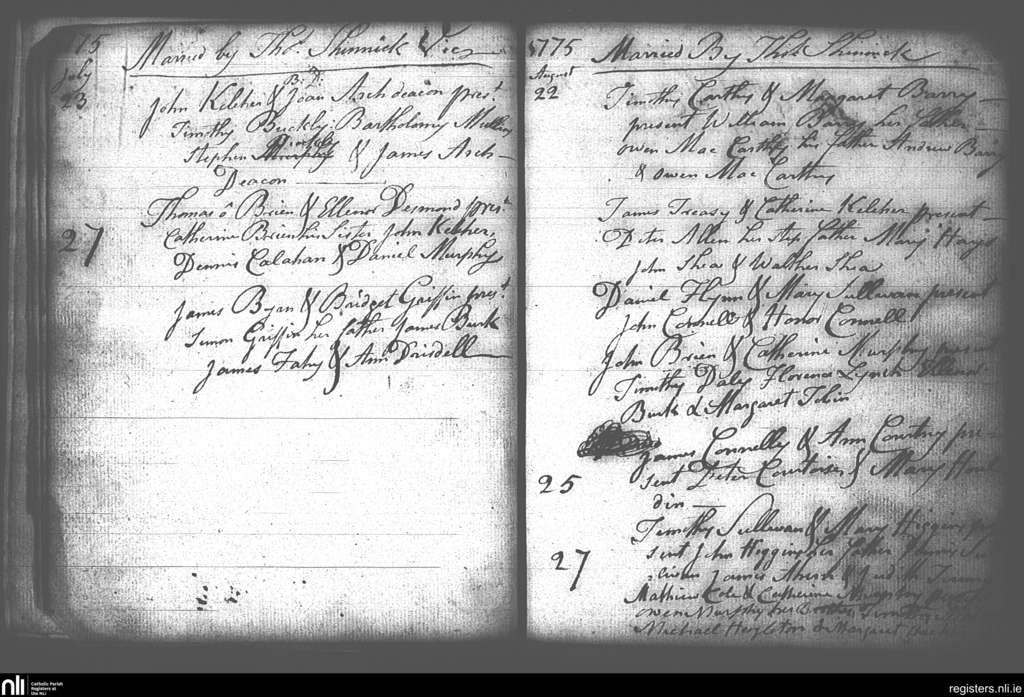 1775 Married by Tho.s Shinnick Vic
July
23 John Keleher & Joan Archdeacon pres.t
B. D.
Timothy Buckly Bartholomy Mullin
Stephen & James Arch
Deacon
Thomas ô Brien & Ellenor Desmond pres.t
27 Catherine Brien his Sister John Keleher,
Dennis Calahan & Daniel Murphy
James Ryan & Bridget Griffin pres.t
Simon Griffin her father James Burk
James Fahy & Ann Drisdell
1775 Married By Shinnick
August
22 Timothy Carthy & Margaret Barry
present William Barry her father
owen Mac Carthy his father Andrew Barry
& owen Mac Carthy
James Treasy & Catherine Keleher present
Peter Allen her step father Mary Hays
John Shea & Walther Shea
Daniel Flynn & Mary Sullivan present
John Connell & Honor Connell
John Brien & Catherine Murphy present
Timothy Daly Florence Lynch
Burk & Margaret Tobin
James Connelly & Ann Courtny pre-
25 sent Peter & Mary
din
Timothy Sullivan & Mary Higgins
27 sent John Higgins her father
James
Mathew Cole & Catherine
owen Murphy her Brother
Michael & Margaret
nli Catholic Parish
Registers at
the NLI
registers.nli.ie